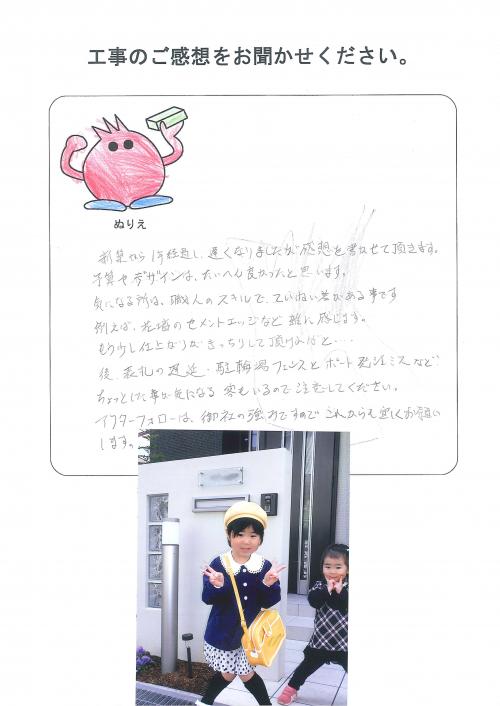 工事のご感想をお聞かせください。
ぬりえ
新築から1年経過し、遅くなりましたが感想を書かせて頂きます。
予算やデザインは、たいへん良かったと思います。
気になる所は、職人のスキルで、ていねい差がある事です
例えば、花壇のセメントエッジなど雑に感じます。
もう少し仕上がりがきっちりして頂ければと・・・・
後、表札の遅延・駐輪場フェンスとポート発注ミスなど
ちょっとした事が気になる 客もいるので注意してください。
アフターフォローは、御社の強みですので これからも宜しくお願い
します。